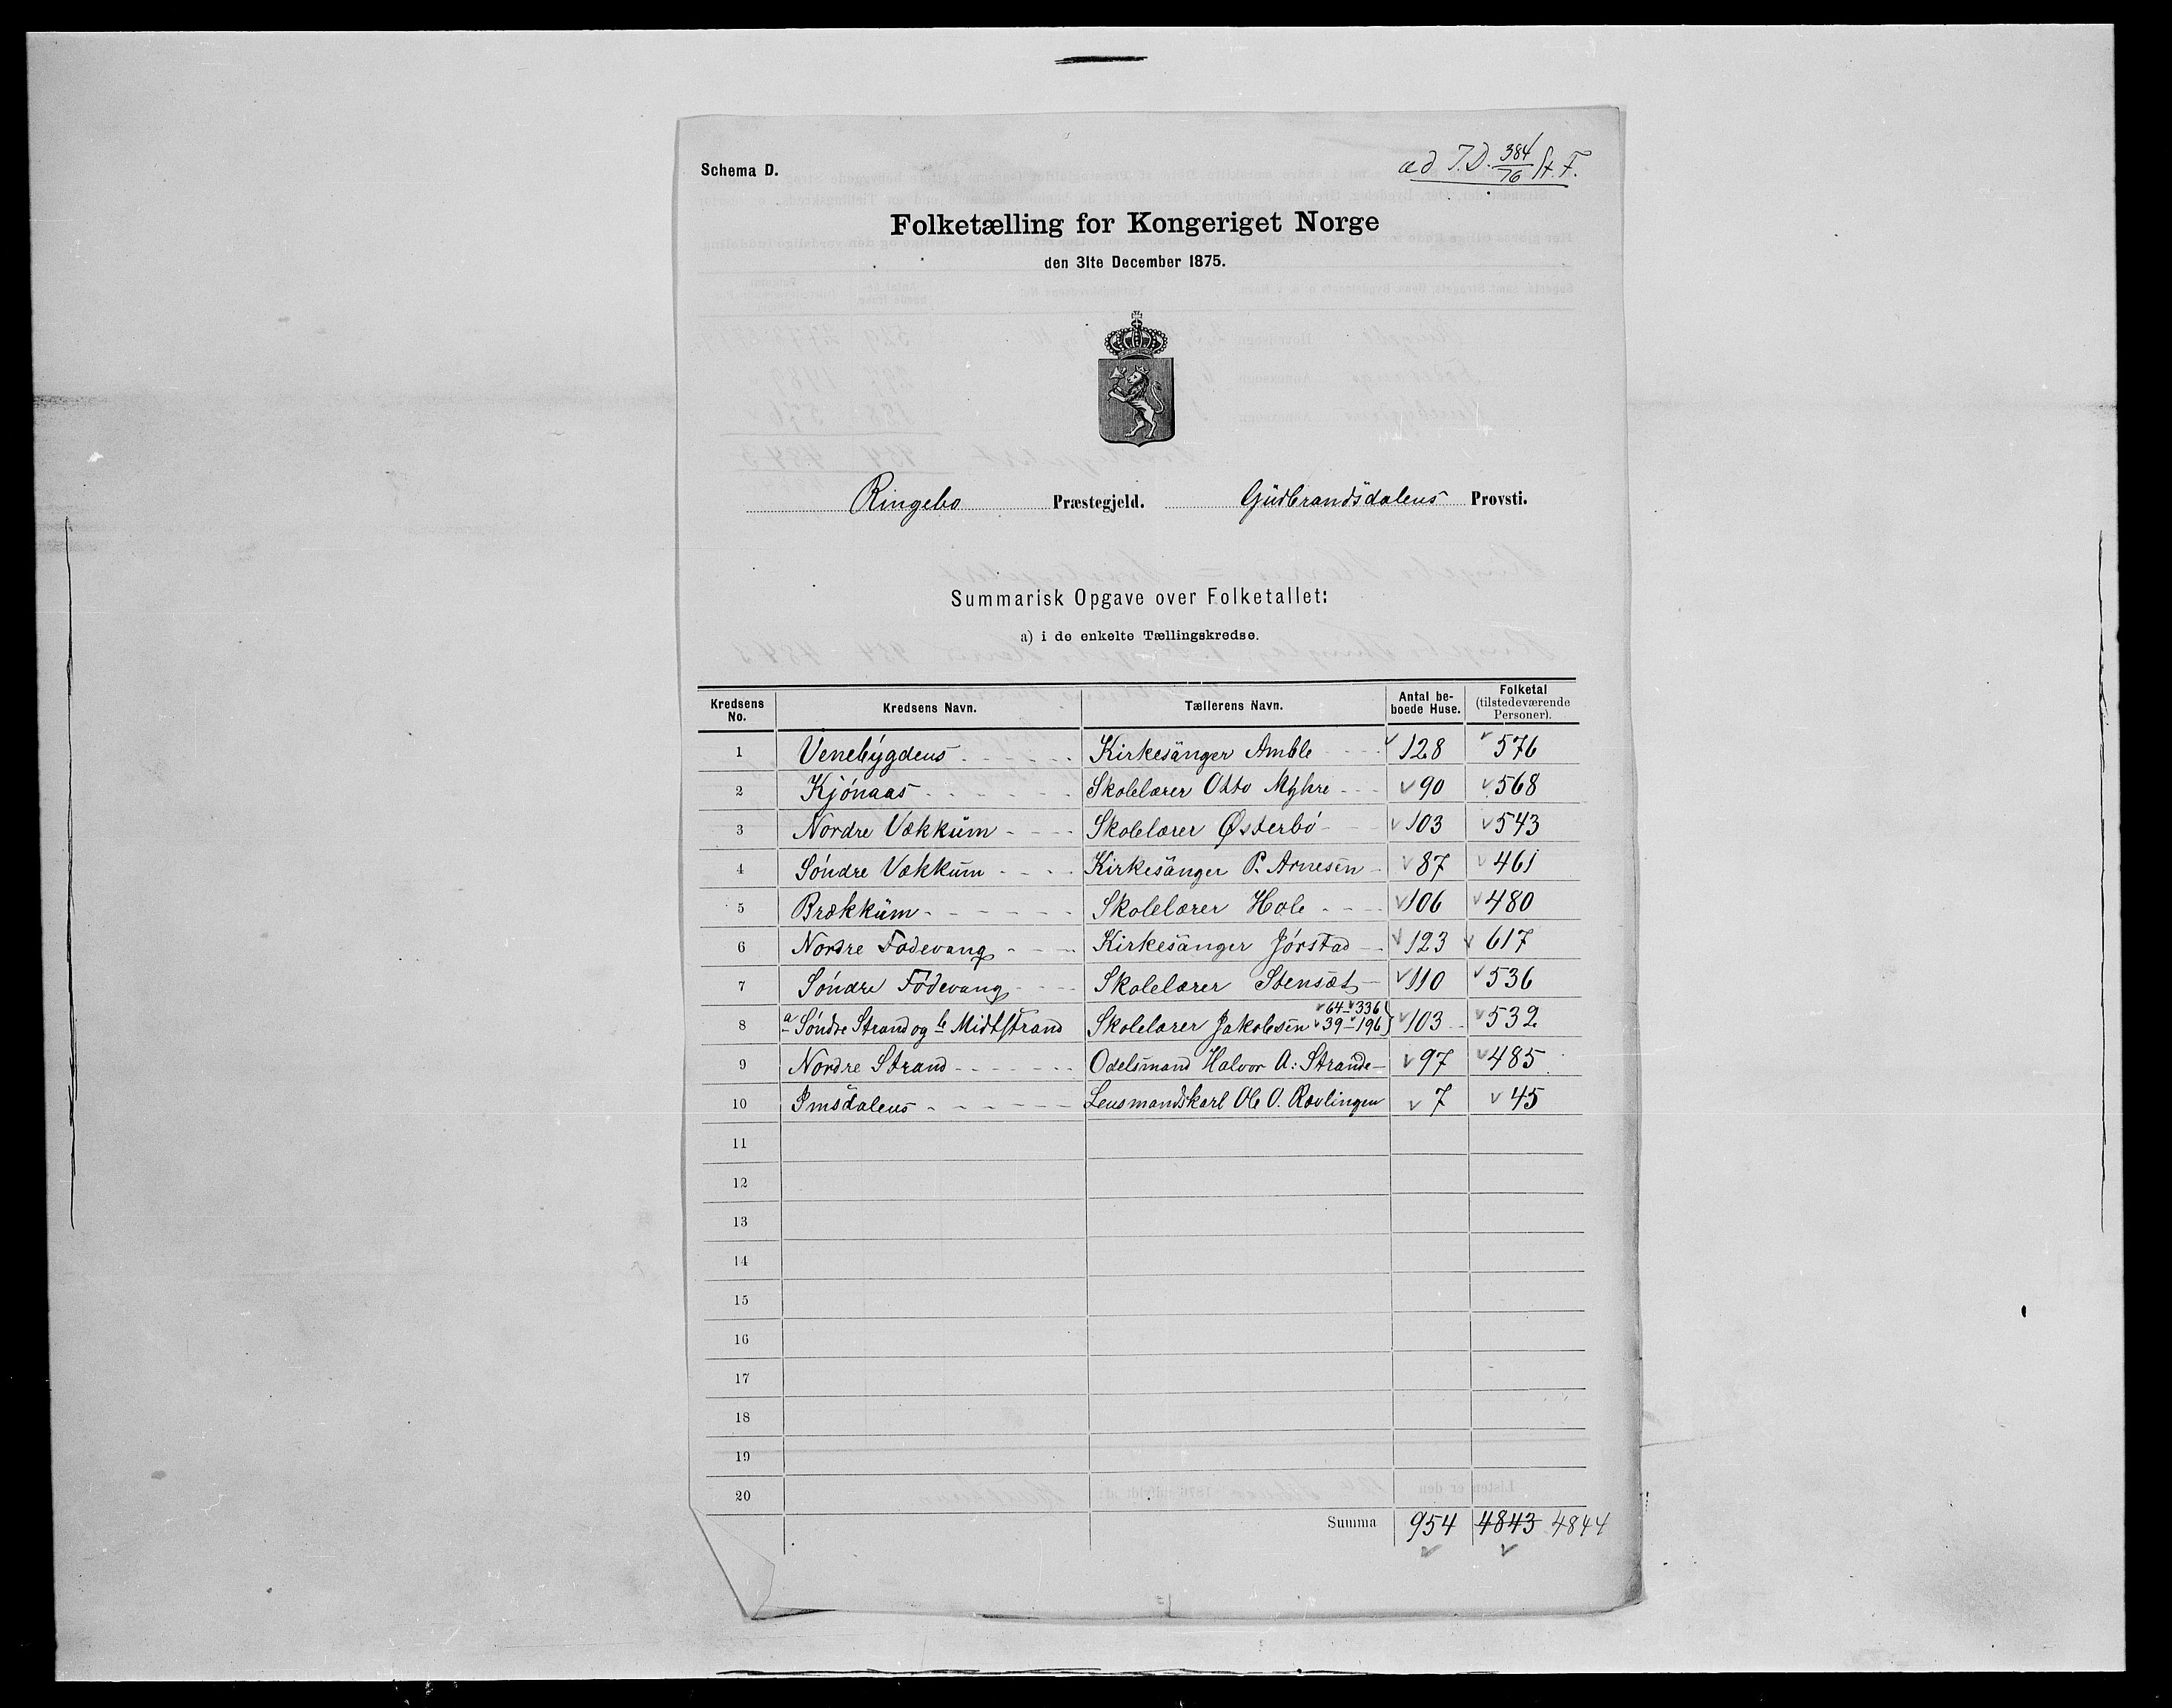 Schema D.
ad J.D. 384/76 St. F.
Folketælling for Kongeriget Norge
den 31te December 1875.
Ringebo Præstegjeld. Gudbrandsdalens Provsti.
Summarisk Opgave over Folketallet:
a) i de enkelte Tællingskredse.
Kredsens No. Kredsens Navn. Tællerens Navn. Antal beboede Huse. Folketal (tilstedeværende Personer).
1 Venebygdens Kirkesanger Amble 128 576
2 Kjönaas Skolelærer Otto Myhre 90 568
3 Nordre Vækkum Skolelærer Østerbö 103 543
4 Söndre Vækkum Kirkesanger P. Arnesen 87 461
5 Brækkum Skolelærer Hole 106 480
6 Nordre Fodevang Kirkesanger Jörstad 123 617
7 Söndre Födevang Skolelærer Stensæt 110 536
8 a Söndre Strand og b Midtstrand Skolelærer Jakobsen 64 – 336 39 – 196 103 532
9 Nordre Strand Odelsmand Halvor A: Strande 97 485
10 Imsdalens Lensmandskarl Ole O. Rovlingen 7 45
11
12
13
14
15
16
17
18
19
20
Summa 954 4843 4844